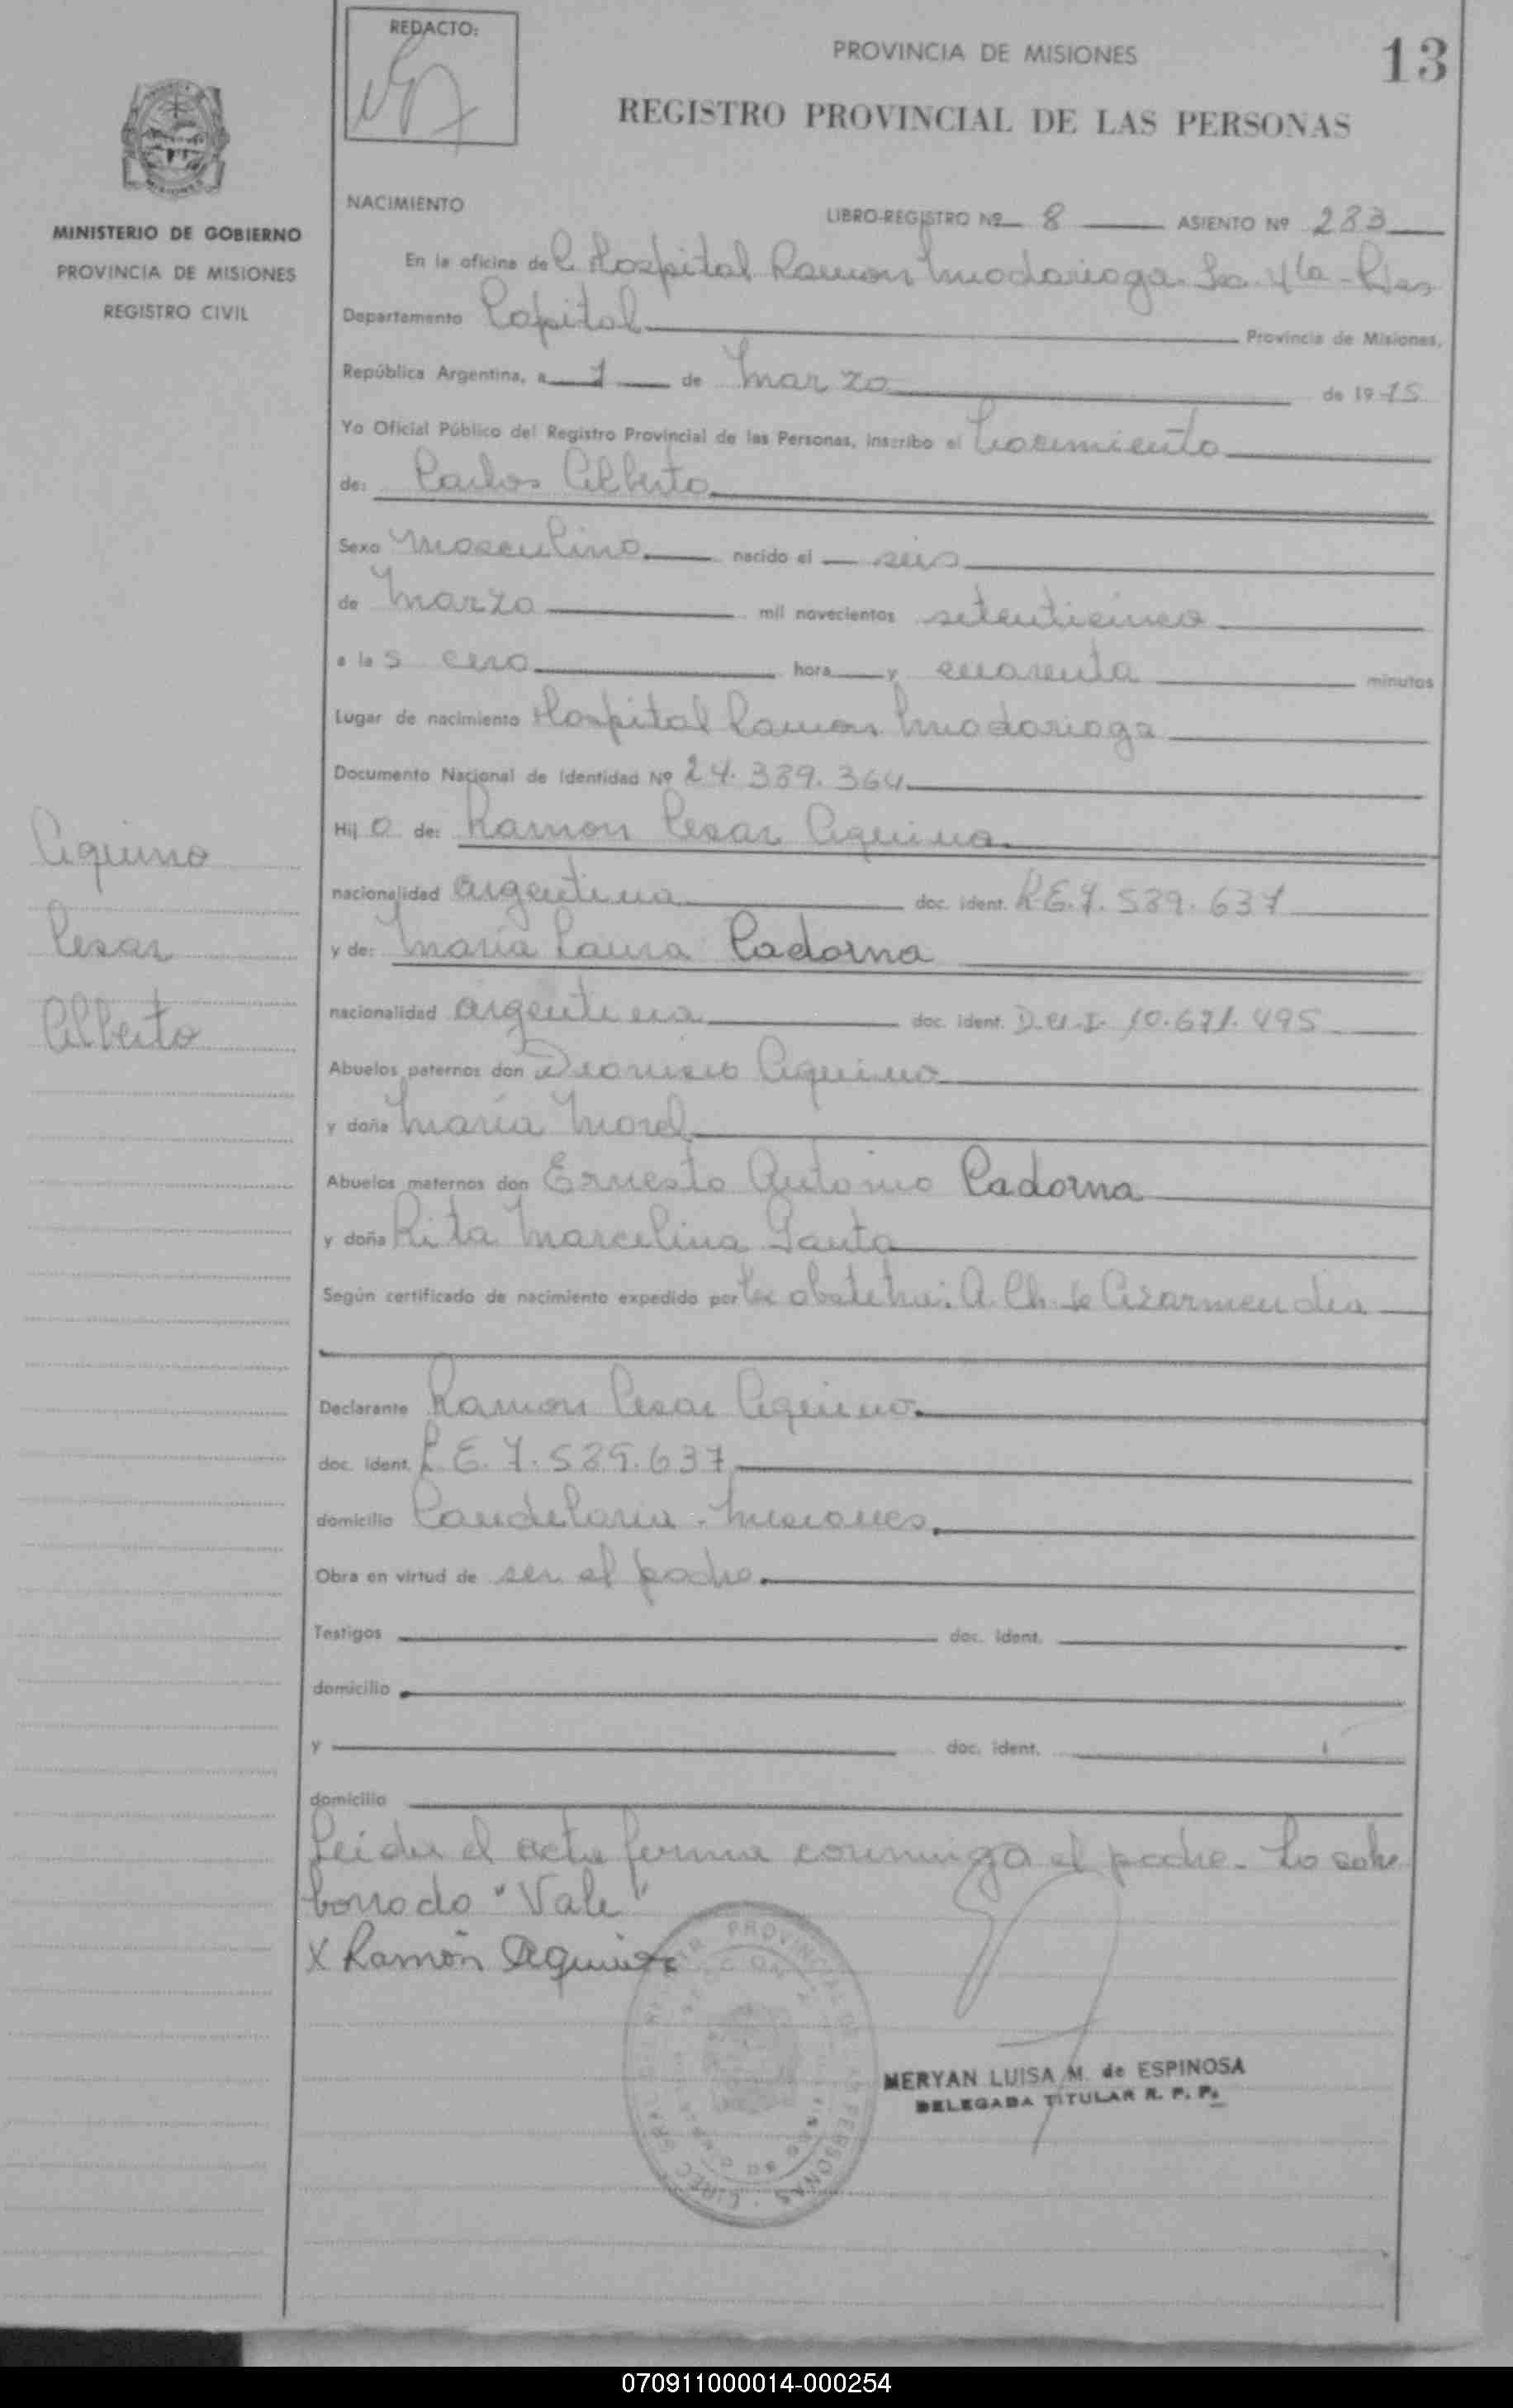 REDACTO:
PROVINCIA DE MISIONES
13
REGISTRO PROVINCIAL DE LAS PERSONAS
MINISTERIO DE GOBIERNO
PROVINCIA DE MISIONES
REGISTRO CIVIL
NACIMIENTO
LIBRO-REGISTRO Nº 8 ASIENTO Nº 283
En la oficina del Hospital Ramon Madariaga Sec. 4ta - Pdas
Departamento Capital Provincia de Misiones,
República Argentina, a 7 de Marzo de 1975
Yo Oficial Público del Registro Provincial de las Personas, inscribo el Nacimiento
de: Carlos Alberto
Sexo Masculino nacido el seis
de Marzo mil novecientos setenticinco
a las cero hora y cuarenta minutos
Lugar de nacimiento Hospital Ramon Madariaga
Documento Nacional de Identidad Nº 24.339.364
Hijo de: Ramon Cesar Aquino
nacionalidad argentina doc. ident. L.E. 7.589.637
y de: Maria Laura Cadorna
nacionalidad argentina doc. ident. D.N.I. 10.671.495
Abuelos paternos don Dionisio Aquino
y doña Maria Morel
Abuelos maternos don Ernesto Antonio Cadorna
y doña Rita Marcelina
Según certificado de nacimiento expedido por la obstetra: A. Ch. de Azarmendia
Declarante Ramon Cesar Aquino
doc. ident. L.E. 7.589.637
domicilio Candelaria - Misiones
Obra en virtud de ser el padre
Testigos doc. ident.
domicilio
y doc. ident.
domicilio
Leida el acta firma conmigo el padre - Lo sobre
borrado "Vale"
X Ramón Aquino
MERYAN LUISA M. de ESPINOSA
DELEGADA TITULAR R. P. P.
Aquino
Cesar
Alberto
070911000014-000254